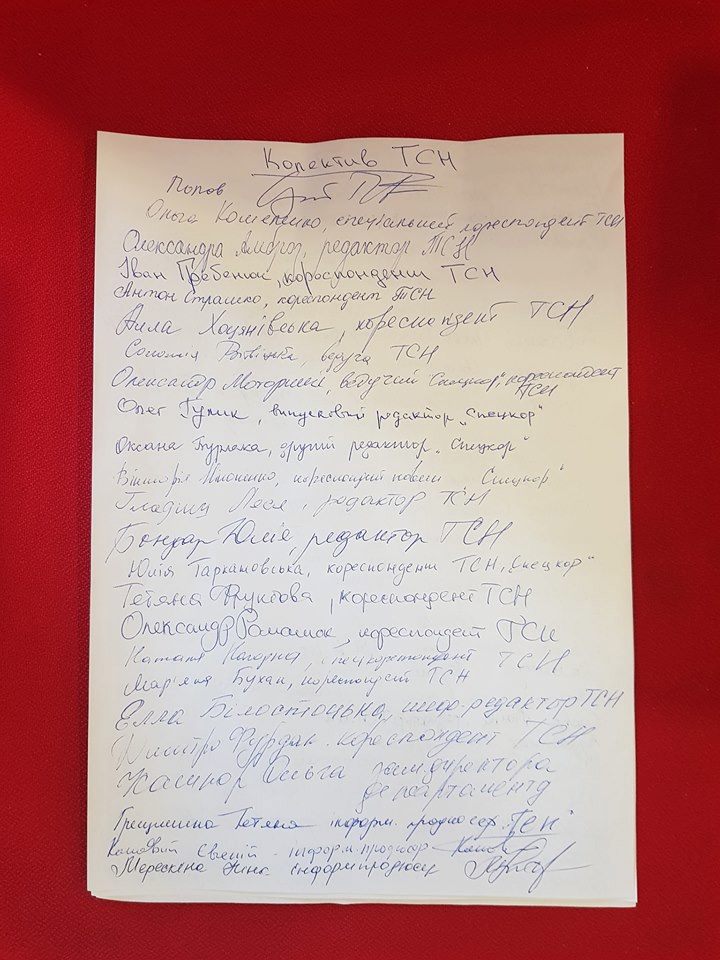 Колектив ТСН
Попов
Ольга Кошеленко, спеціальний кореспондент ТСН
Олександра Амброз, редактор ТСН
Іван Гребенюк, кореспондент ТСН
Антон Страшко, кореспондент ТСН
Алла Хоцянівська, кореспондент ТСН
Соломія Вітвіцька, ведуча ТСН
Олександр Моторний, ведучий "Спецкор", кореспондент
ТСН
Олег Гулик, випусковий редактор „Спецкор"
Оксана Бурлака, другий редактор „Спецкор"
Вікторія, кореспондент „Спецкор"
Леся, редактор ТСН
Бондар Юлія, редактор ТСН
Юлія Таркановська, кореспондент ТСН, „Спецкор"
Тетяна Фруктова, кореспондент ТСН
Олександр Романюк, кореспондент ТСН
Наталія Нагорна, спецкореспондент ТСН
Мар'яна Бухан, кореспондент ТСН
Елла Білостоцька, шеф-редактор ТСН
Дмитро Фурдак. кореспондент ТСН
Кашпор Ольга замдиректора
департаменту
Тетяна інформ. продюсер „ТСН"
Євгеній - інформ. продюсер
Ніна інформпродюсер